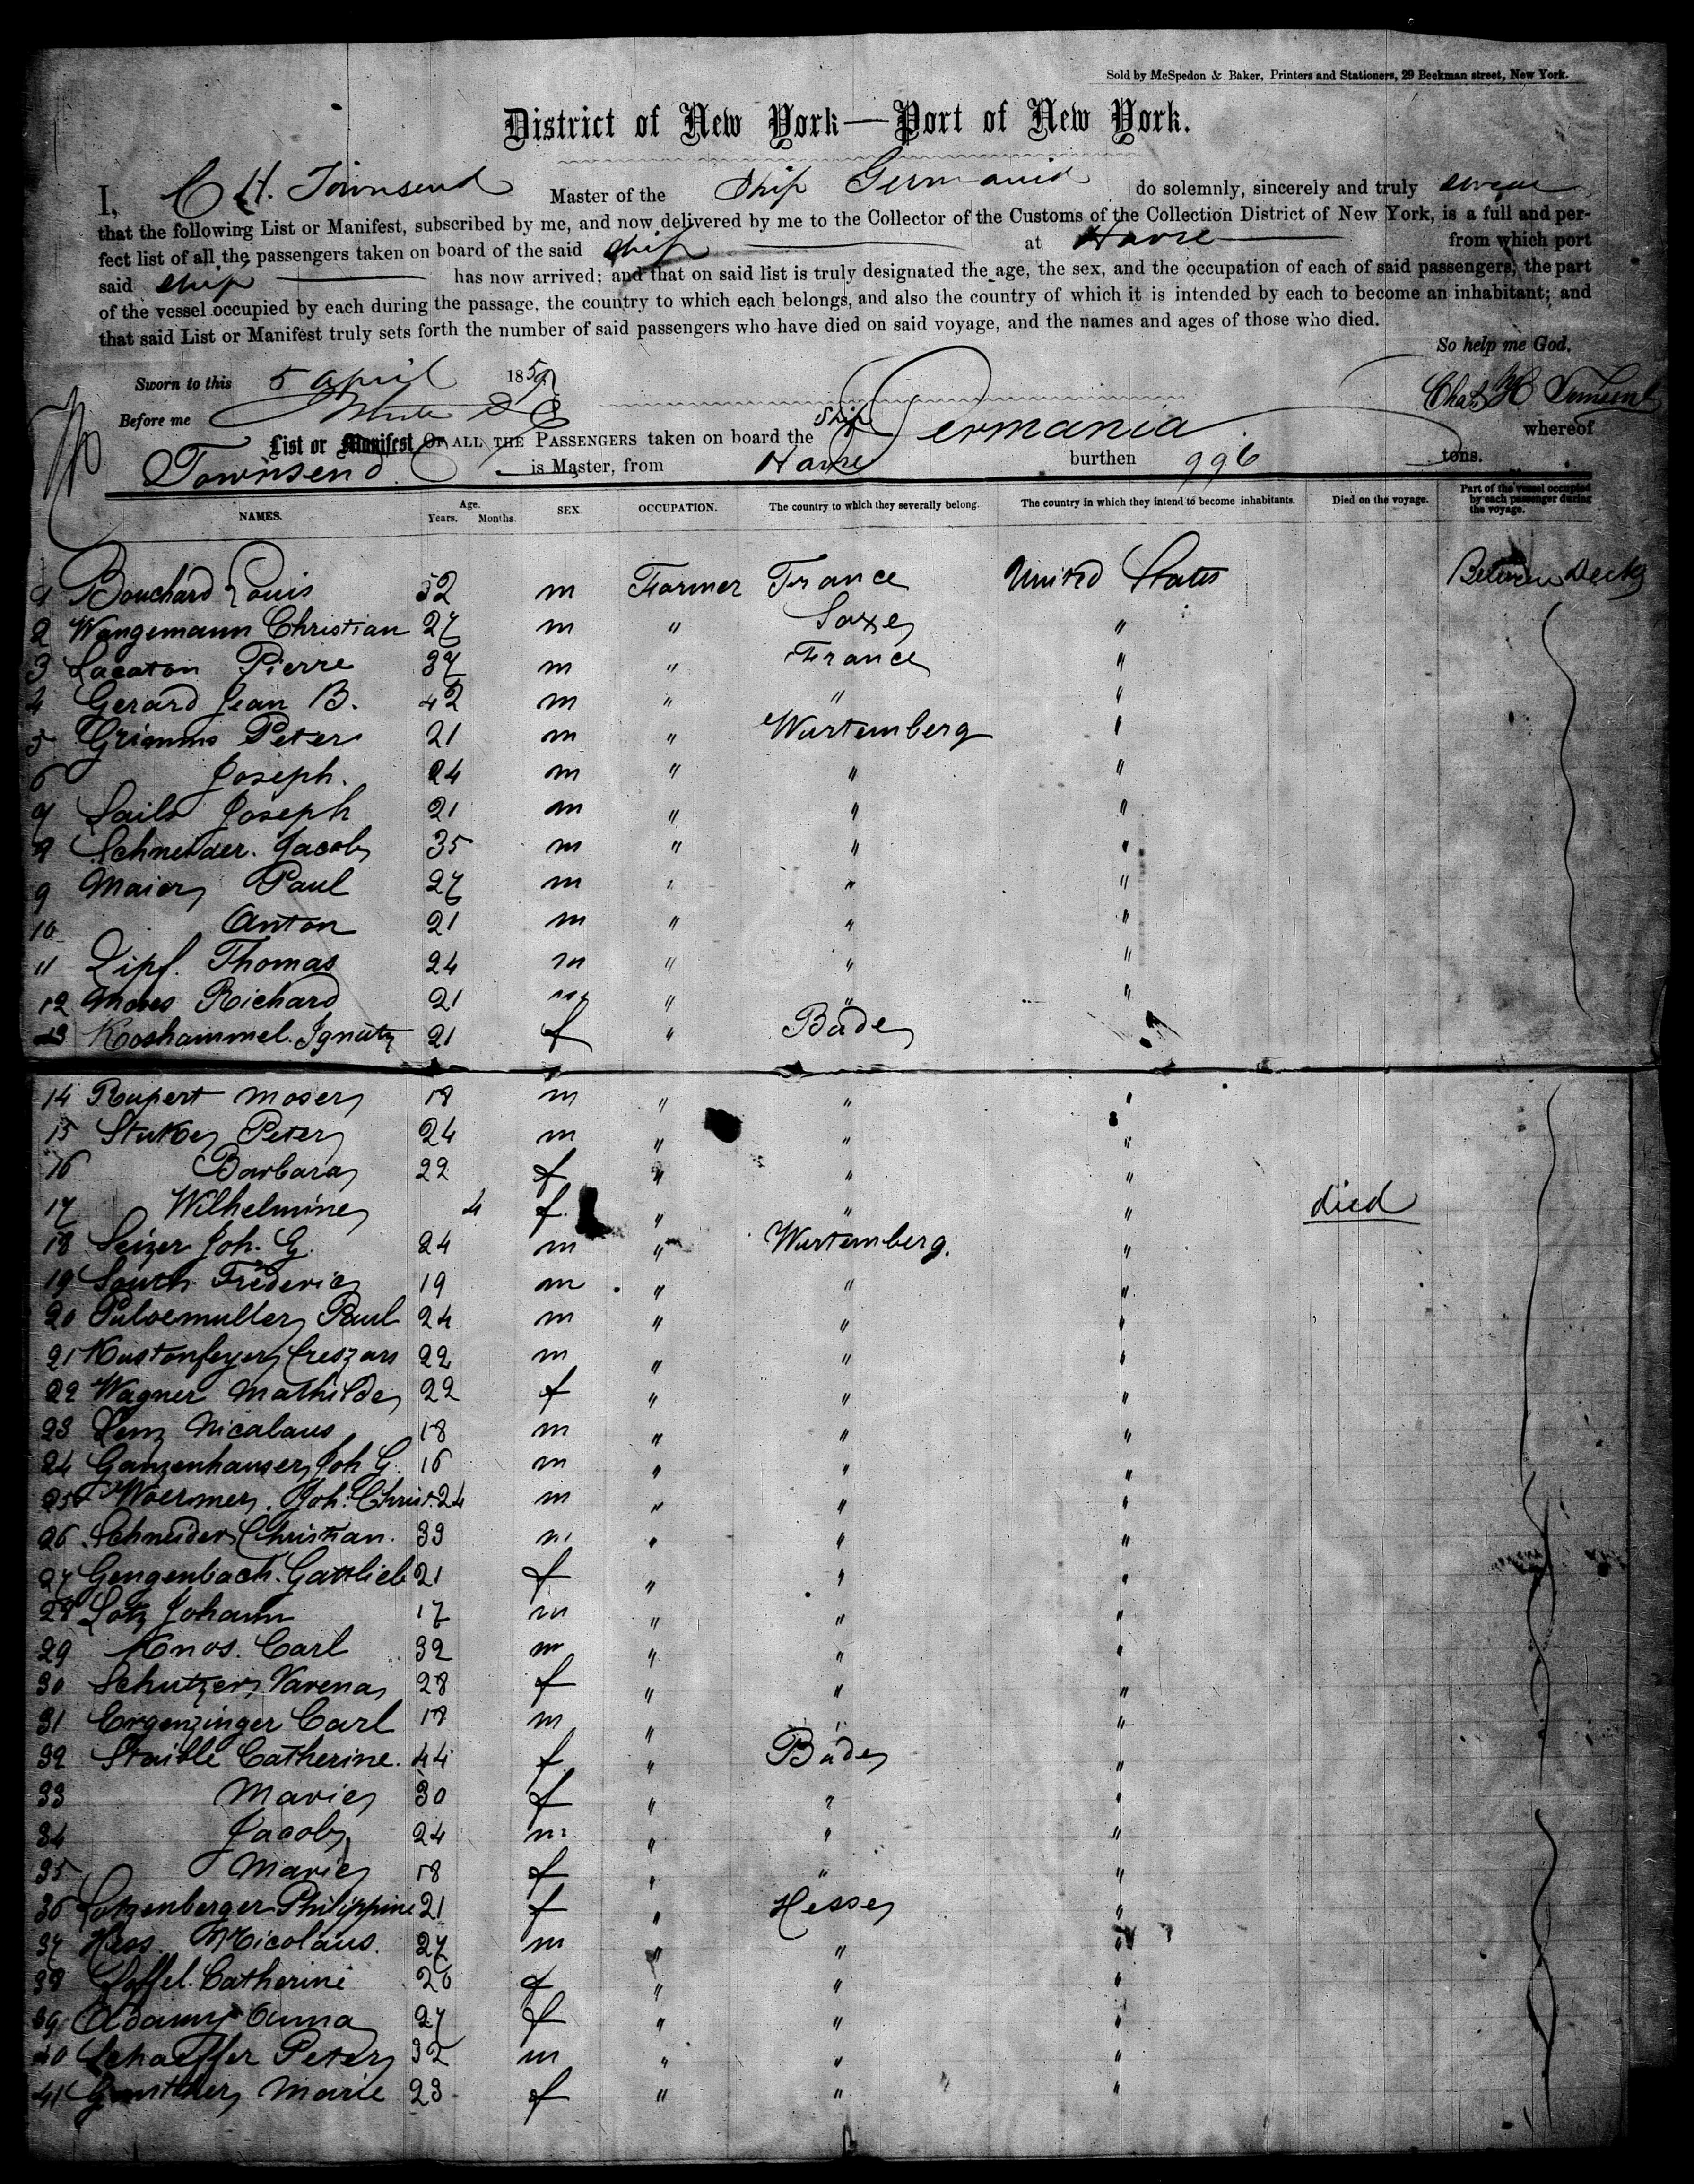 Sold by McSpedon & Baker, Printers and Stationers, 29 Beekman street, New York.
District of New York—Port of New York.
I, C H. Townsend Master of the Ship Germania do solemnly, sincerely and truly swear
that the following List or Manifest, subscribed by me, and now delivered by me to the Collector of the Customs of the Collection District of New York, is a full and per-
fect list of all the passengers taken on board of the said Ship at Havre from which port
said Ship has now arrived; and that on said list is truly designated the age, the sex, and the occupation of each of said passengers, the part
of the vessel occupied by each during the passage, the country to which each belongs, and also the country of which it is intended by each to become an inhabitant; and
that said List or Manifest truly sets forth the number of said passengers who have died on said voyage, and the names and ages of those who died.
So help me God.
Sworn to this 5 April 1859
Chas H Townsend
Before me
List or Manifest OF ALL THE PASSENGERS taken on board the Ship Germania whereof
Townsend is Master, from Havre burthen 996 tons.
NAMES. Age. Years. Months. SEX OCCUPATION. The country to which they severally belong. The country in which they intend to become inhabitants. Died on the voyage. Part of the vessel occupied by each passenger during the voyage.
1 Bouchard Louis 52 m Farmer France United States Between Decks
2 Wangemann Christian 27 m " Saxe "
3 Lacaton Pierre 37 m " France "
4 Gerard Jean B. 42 m " " "
5 Grimms Peter 21 m " Wurtemberg "
6 Joseph. 24 m " " "
7 Sails Joseph 21 m " " "
8 Schneider. Jacob 35 m " " "
9 Maier Paul 27 m " " "
10 Anton 21 m " " "
11 Zipf. Thomas 24 m " " "
12 Moses Richard 21 m " " "
13 Koshammel. Ignatz 21 f " Bade
14 Rupert Moser 18 m " " "
15 Peter 24 m " " "
16 Barbara 22 f " " "
17 Wilhelmine 4 f " " " died
18 Seizer Joh. G. 24 m " Wurtemberg. "
19 Frederic 19 m " " "
20 Paul 24 m " " "
21 22 m " " "
22 Wagner Mathilde 22 f " " "
23 Nicalaus 18 m " " "
24 Ganzenhauser Joh G. 16 m " " "
25 Woermer. Joh. Christ. 24 m " " "
26 Schneider Christian. 33 m " " "
27 Gengenbach. Gottlieb 21 f " " "
28 Lotz Johann 17 m " " "
29 Knos. Carl 32 m " " "
30 Schutzer Varena 28 f " " "
31 Ergenzinger Carl 18 m " " "
32 Staible Catherine. 44 f " Bade "
33 Marie 30 f " " "
34 Jacob 24 m " " "
35 Marie 18 f " " "
36 Lotzenberger Philippine 21 f " Hesse "
37 Hess Nicolaus. 27 m " " "
38 Catherine 26 f " " "
39 Adamy Anna 27 f " " "
40 Schaeffer Peter 32 m " " "
41 Gunther Marie 23 f " " "